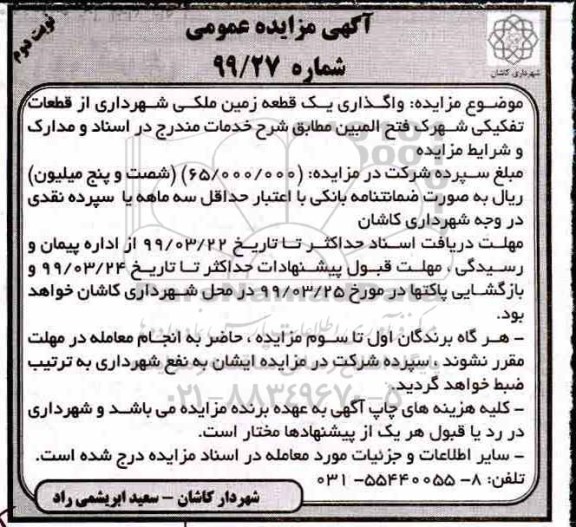 نوبت دوم
آگهی مزایده عمومی
شماره ۹۹/۲۷
شهرداری کاشان
موضوع مزایده: واگذاری یک قطعه زمین ملکی شهرداری از قطعات
تفکیکی شهرک فتح المبین مطابق شرح خدمات مندرج در اسناد و مدارک
و شرایط مزایده
مبلغ سپرده شرکت در مزایده: (۶۵/۰۰۰/۰۰۰) (شصت و پنج میلیون)
ریال به صورت ضمانتنامه بانکی با اعتبار حداقل سه ماهه یا سپرده نقدی
در وجه شهرداری کاشان
مهلت دریافت اسناد حداکثر تا تاریخ ۹۹/۰۳/۲۲ از اداره پیمان و
رسیدگی ، مهلت قبول پیشنهادات حداکثر تا تاریخ ۹۹/۰۳/۲۴ و
بازگشایی پاکتها در مورخ ۹۹/۰۳/۲۵ در محل شهرداری کاشان خواهد
بود.
- هر گاه برندگان اول تا سوم مزایده ، حاضر به انجام معامله در مهلت
مقرر نشوند ، سپرده شرکت در مزایده ایشان به نفع شهرداری به ترتیب
ضبط خواهد گردید.
- کلیه هزینه های چاپ آگهی به عهده برنده مزایده می باشد و شهرداری
در رد یا قبول هر یک از پیشنهادها مختار است.
- سایر اطلاعات و جزئیات مورد معامله در اسناد مزایده درج شده است.
تلفن: ۸- ۵۵۴۴۰۰۵۵- ۰۳۱
شهردار کاشان – سعید ابریشمی راد
۰۲۱-۸۸۳۴۹۶۷۰-۵